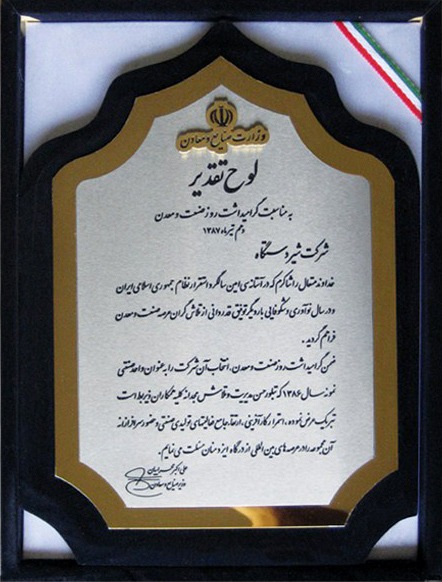 وزارت صنایع و معادن
لوح تقدیر
به مناسبت گرامیداشت روز صنعت و معدن
دهم تیرماه ۱۳۸۷
شرکت شیر دستگاه
خداوند متعال را شاکرم که در آستانه‌ی سی امین سالگرد استقرار نظام جمهوری اسلامی ایران
و در سال نوآوری و شکوفایی بار دیگر توفیق قدردانی از تلاش گران عرصه صنعت و معدن
فراهم گردید.
ضمن گرامیداشت روز صنعت و معدن، انتخاب آن شرکت را به عنوان واحد صنعتی
نمونه سال ۱۳۸۶ که تبلور حسن مدیریت و تلاش مجدانه کلیه همکاران ذیربط است
تبریک عرض نموده، استمرار کارآفرینی، ارتقاء جامع فعالیتهای تولیدی صنعتی و حضور سرافرازانه
آن مجموعه را در عرصه های بین المللی از درگاه ایزد منان مسئلت می نمایم.
علی اکبر محرابیان
وزیر صنایع و معادن